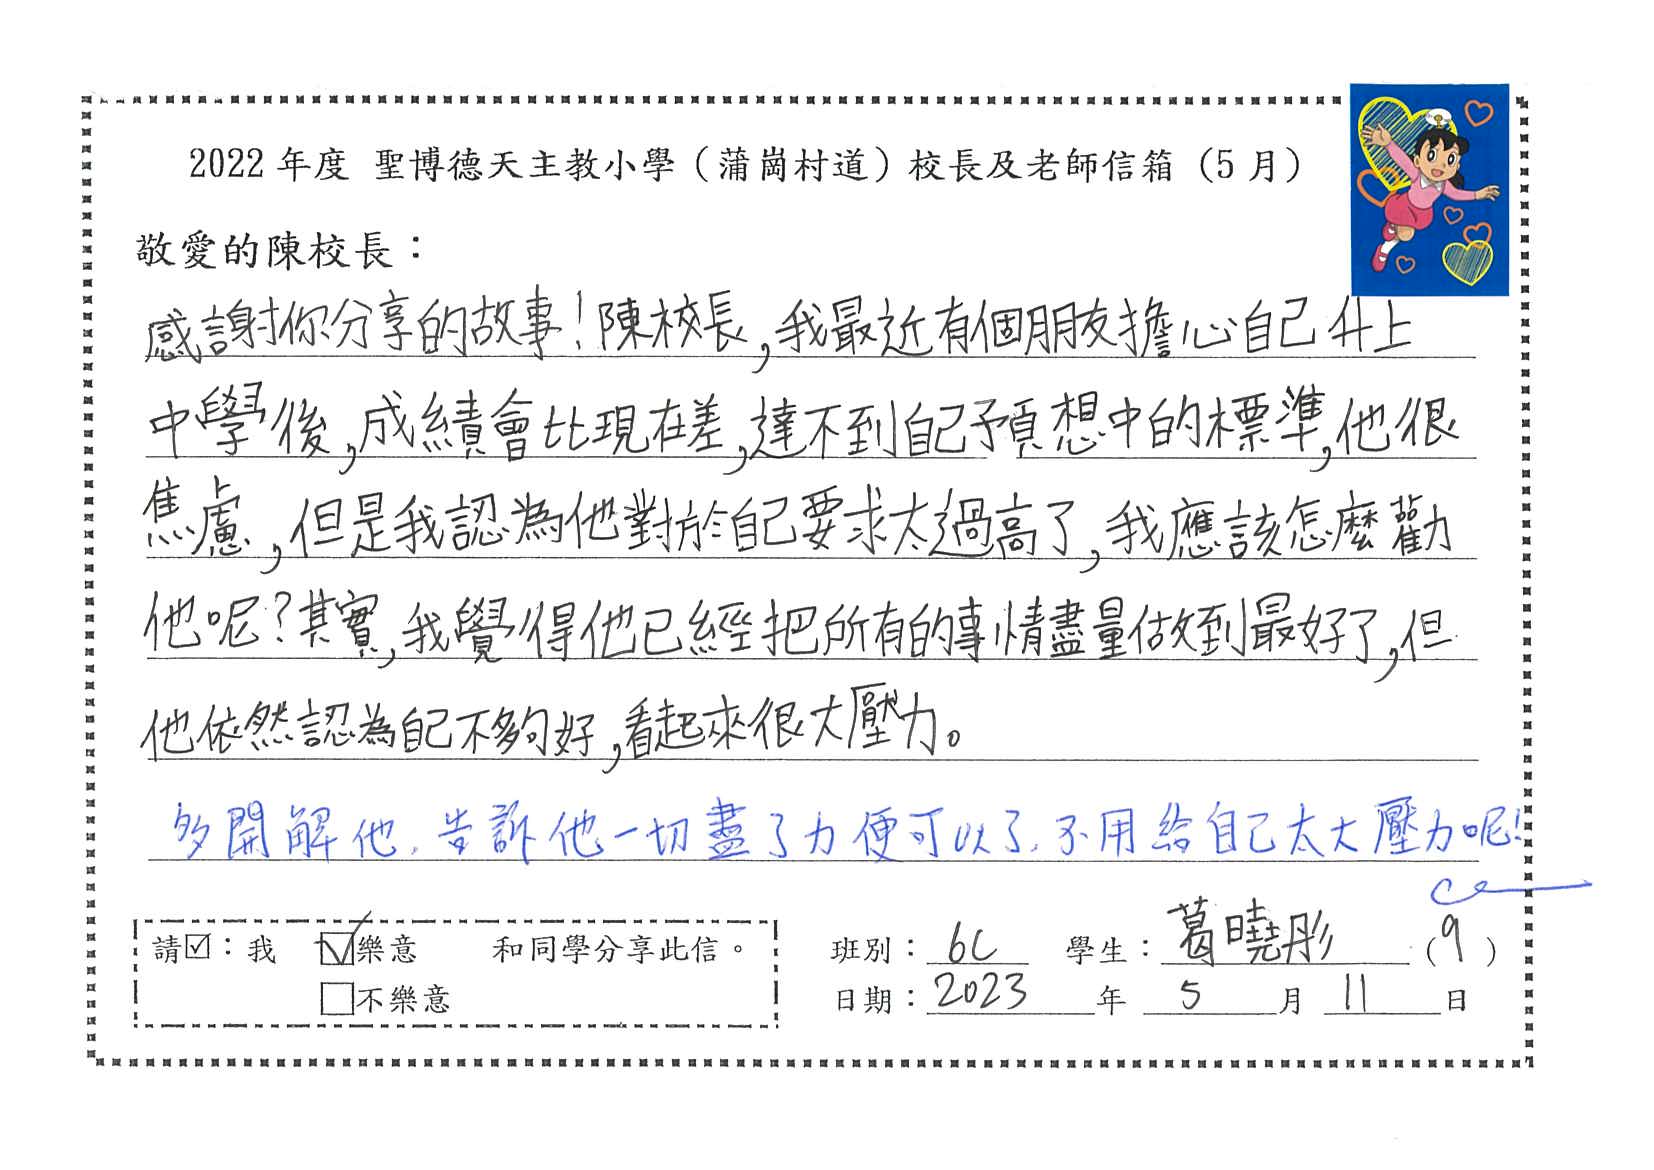 2022 年度 聖博德天主教小學（蒲崗村道）校長及老師信箱（5 月）
敬愛的陳校長：
感謝你分享的故事！陳校長，我最近有個朋友擔心自己升上
中學後，成績會比現在差，達不到自己預想中的標準，他很
焦慮，但是我認為他對於自己要求太過高了，我應該怎麼勸
他呢？其實，我覺得他已經把所有的事情盡量做到最好了，但
他依然認為自己不夠好，看起來很大壓力。
多開解他，告訴他一切盡了力便可以了，不用給自己太大壓力呢！
請☑：我 ☑樂意 和同學分享此信。
□不樂意
班別：6C 學生：葛曉彤（9）
日期：2023 年 5 月 11 日